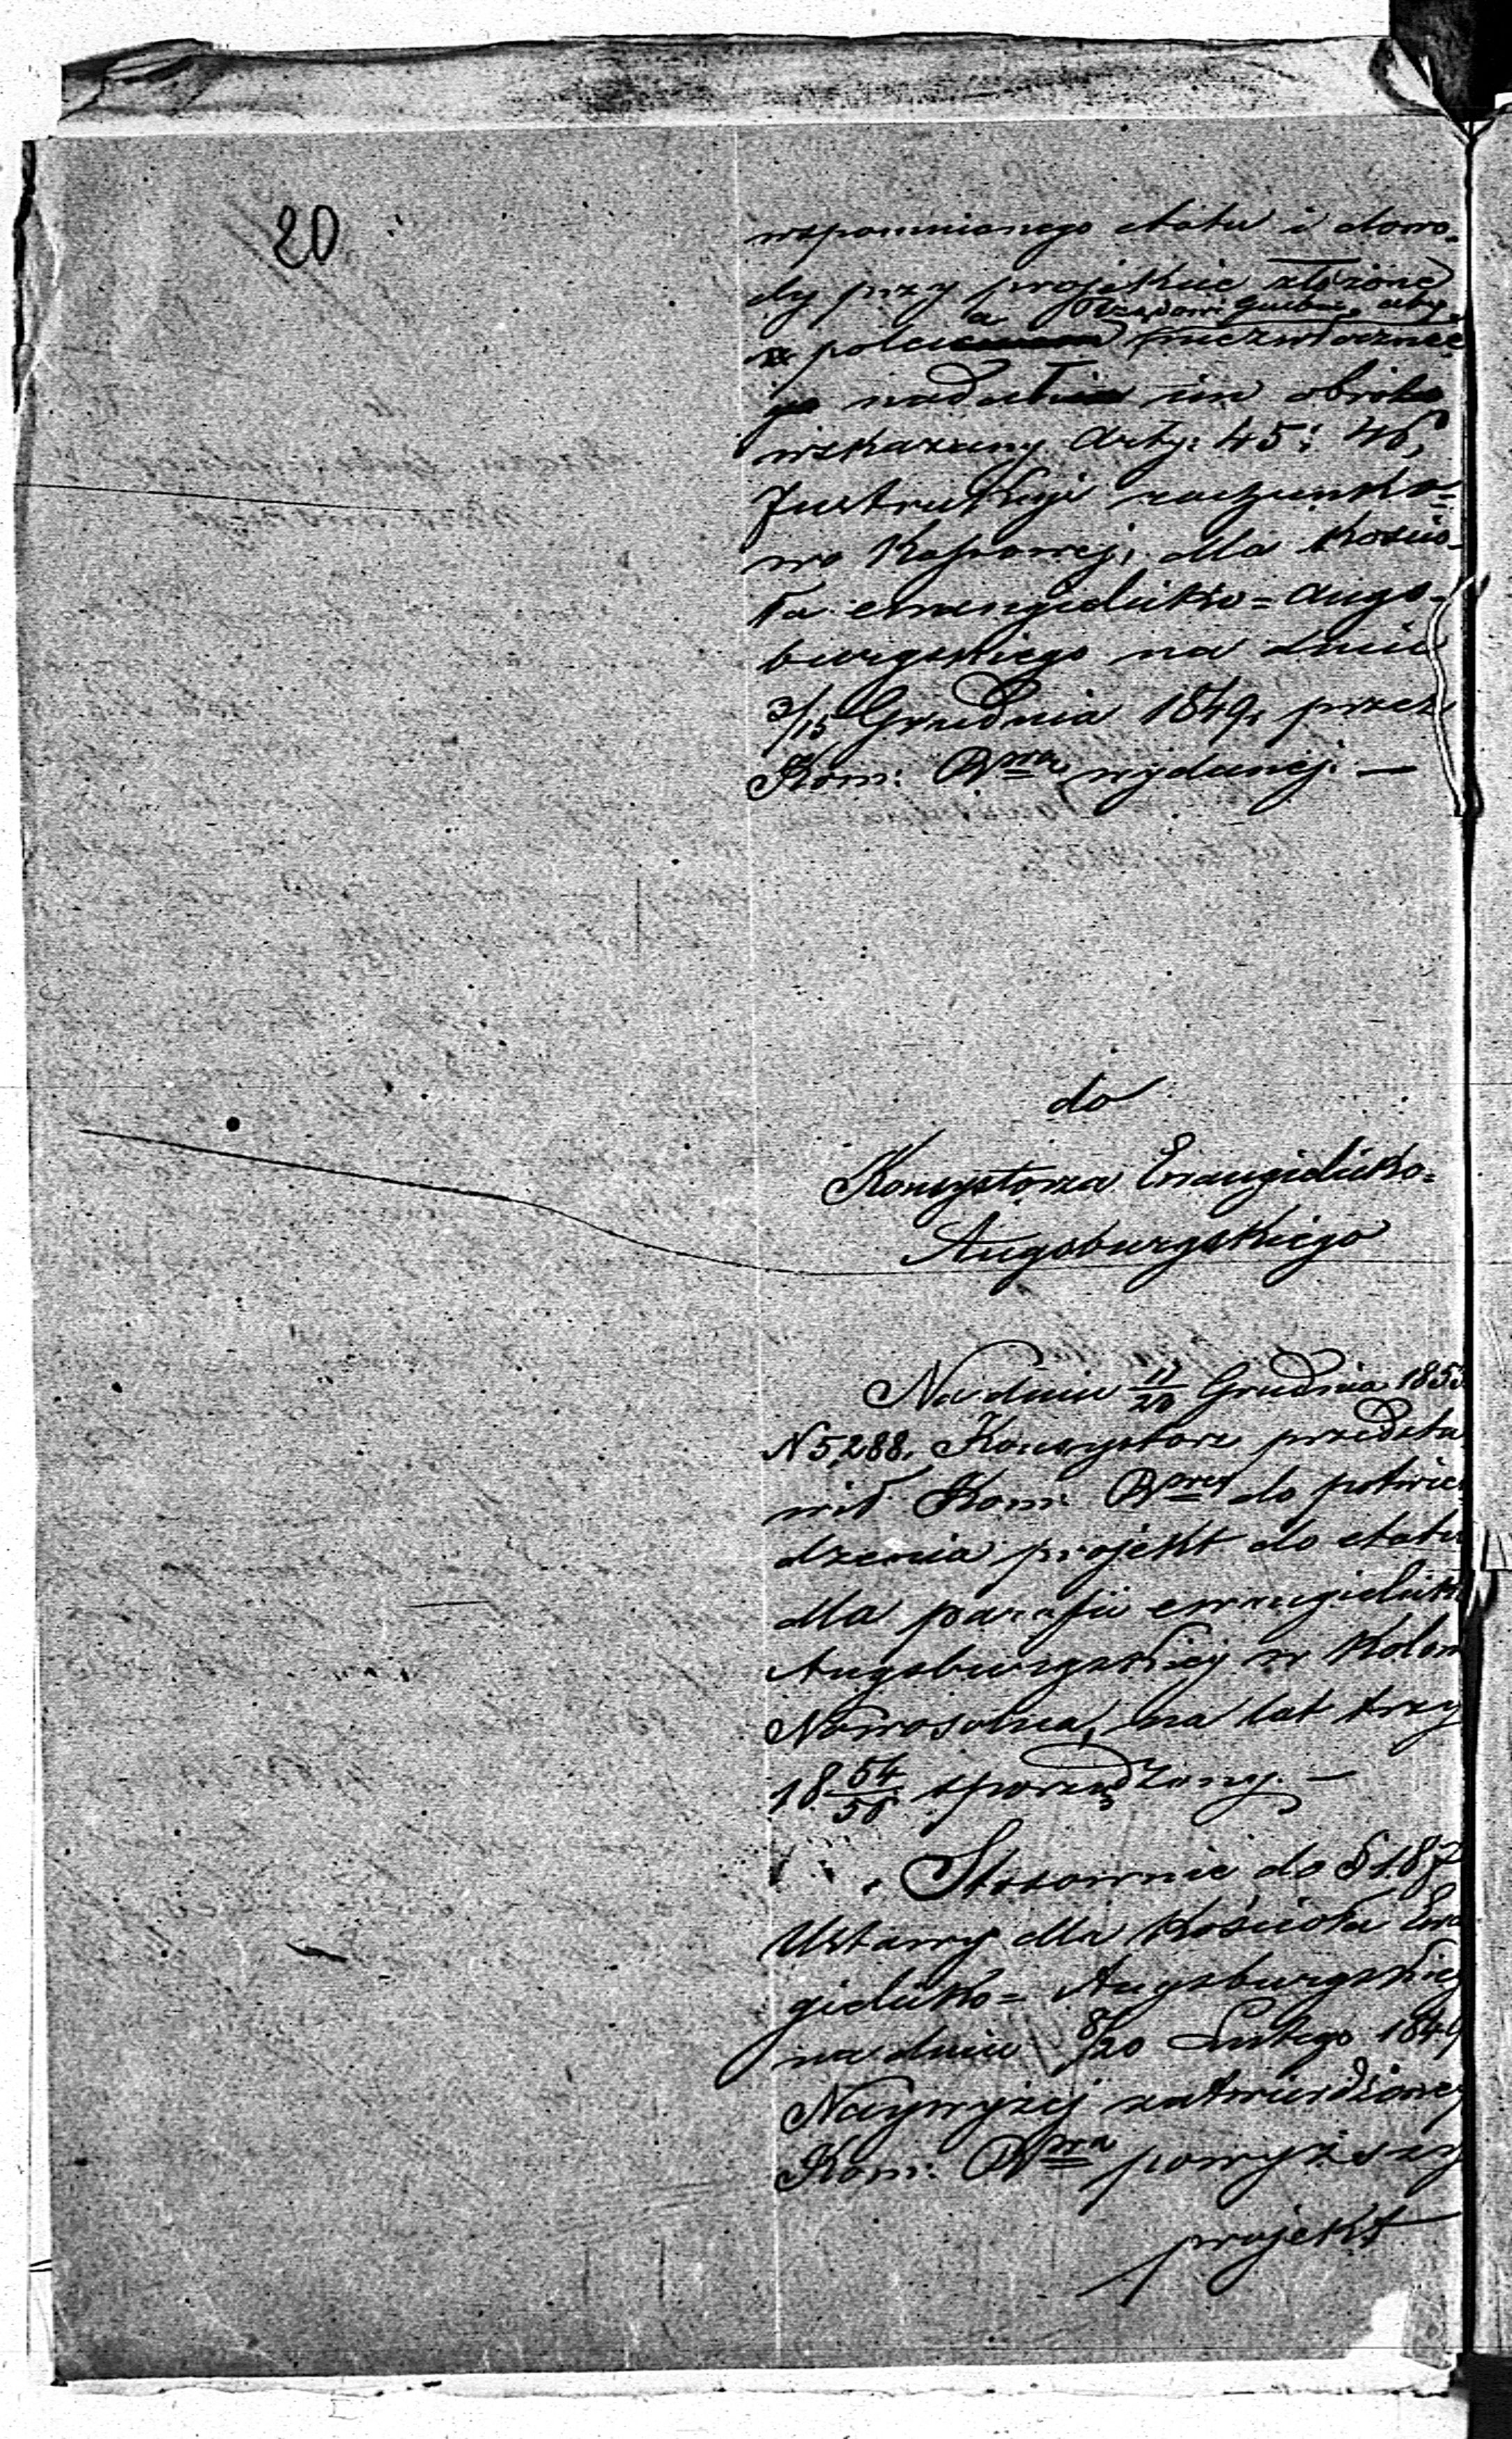 20
wspomnianego etatu i dowo-
dy przy projekcie złożone
a Rządowi Guber. aby
poleci niezwłocznie
nadał im obrót
wskazany Arty: 45 i 46,
Instrukcji rachunko-
wo Kassowej, dla Kościo-
ła ewangielicko=augs-
burgskiego na dniu
3/15 Grudnia 1849 r. przez
Kom: Rwą wydanej. —
do
Konsystorza Ewangielicko-
Augsburgskiego
Na dniu Grudnia 185
N 5,288. Konsystorz przedsta
wił Kom: Rwej do potwier
dzenia projekt do etatu
dla parafii ewangielick
Augsburgskiej w Kolon
Nowosolna, na lat trzy
18 54/56 sporządzony. —
Stosownie do § 187
Ustawy dla Kościoła Ewa
gielicko= Augsburgskieg
na dniu 8/20 Lutego 1849
Najwyżej zatwierdzonej
Kom: Rwa powyższy
projekt